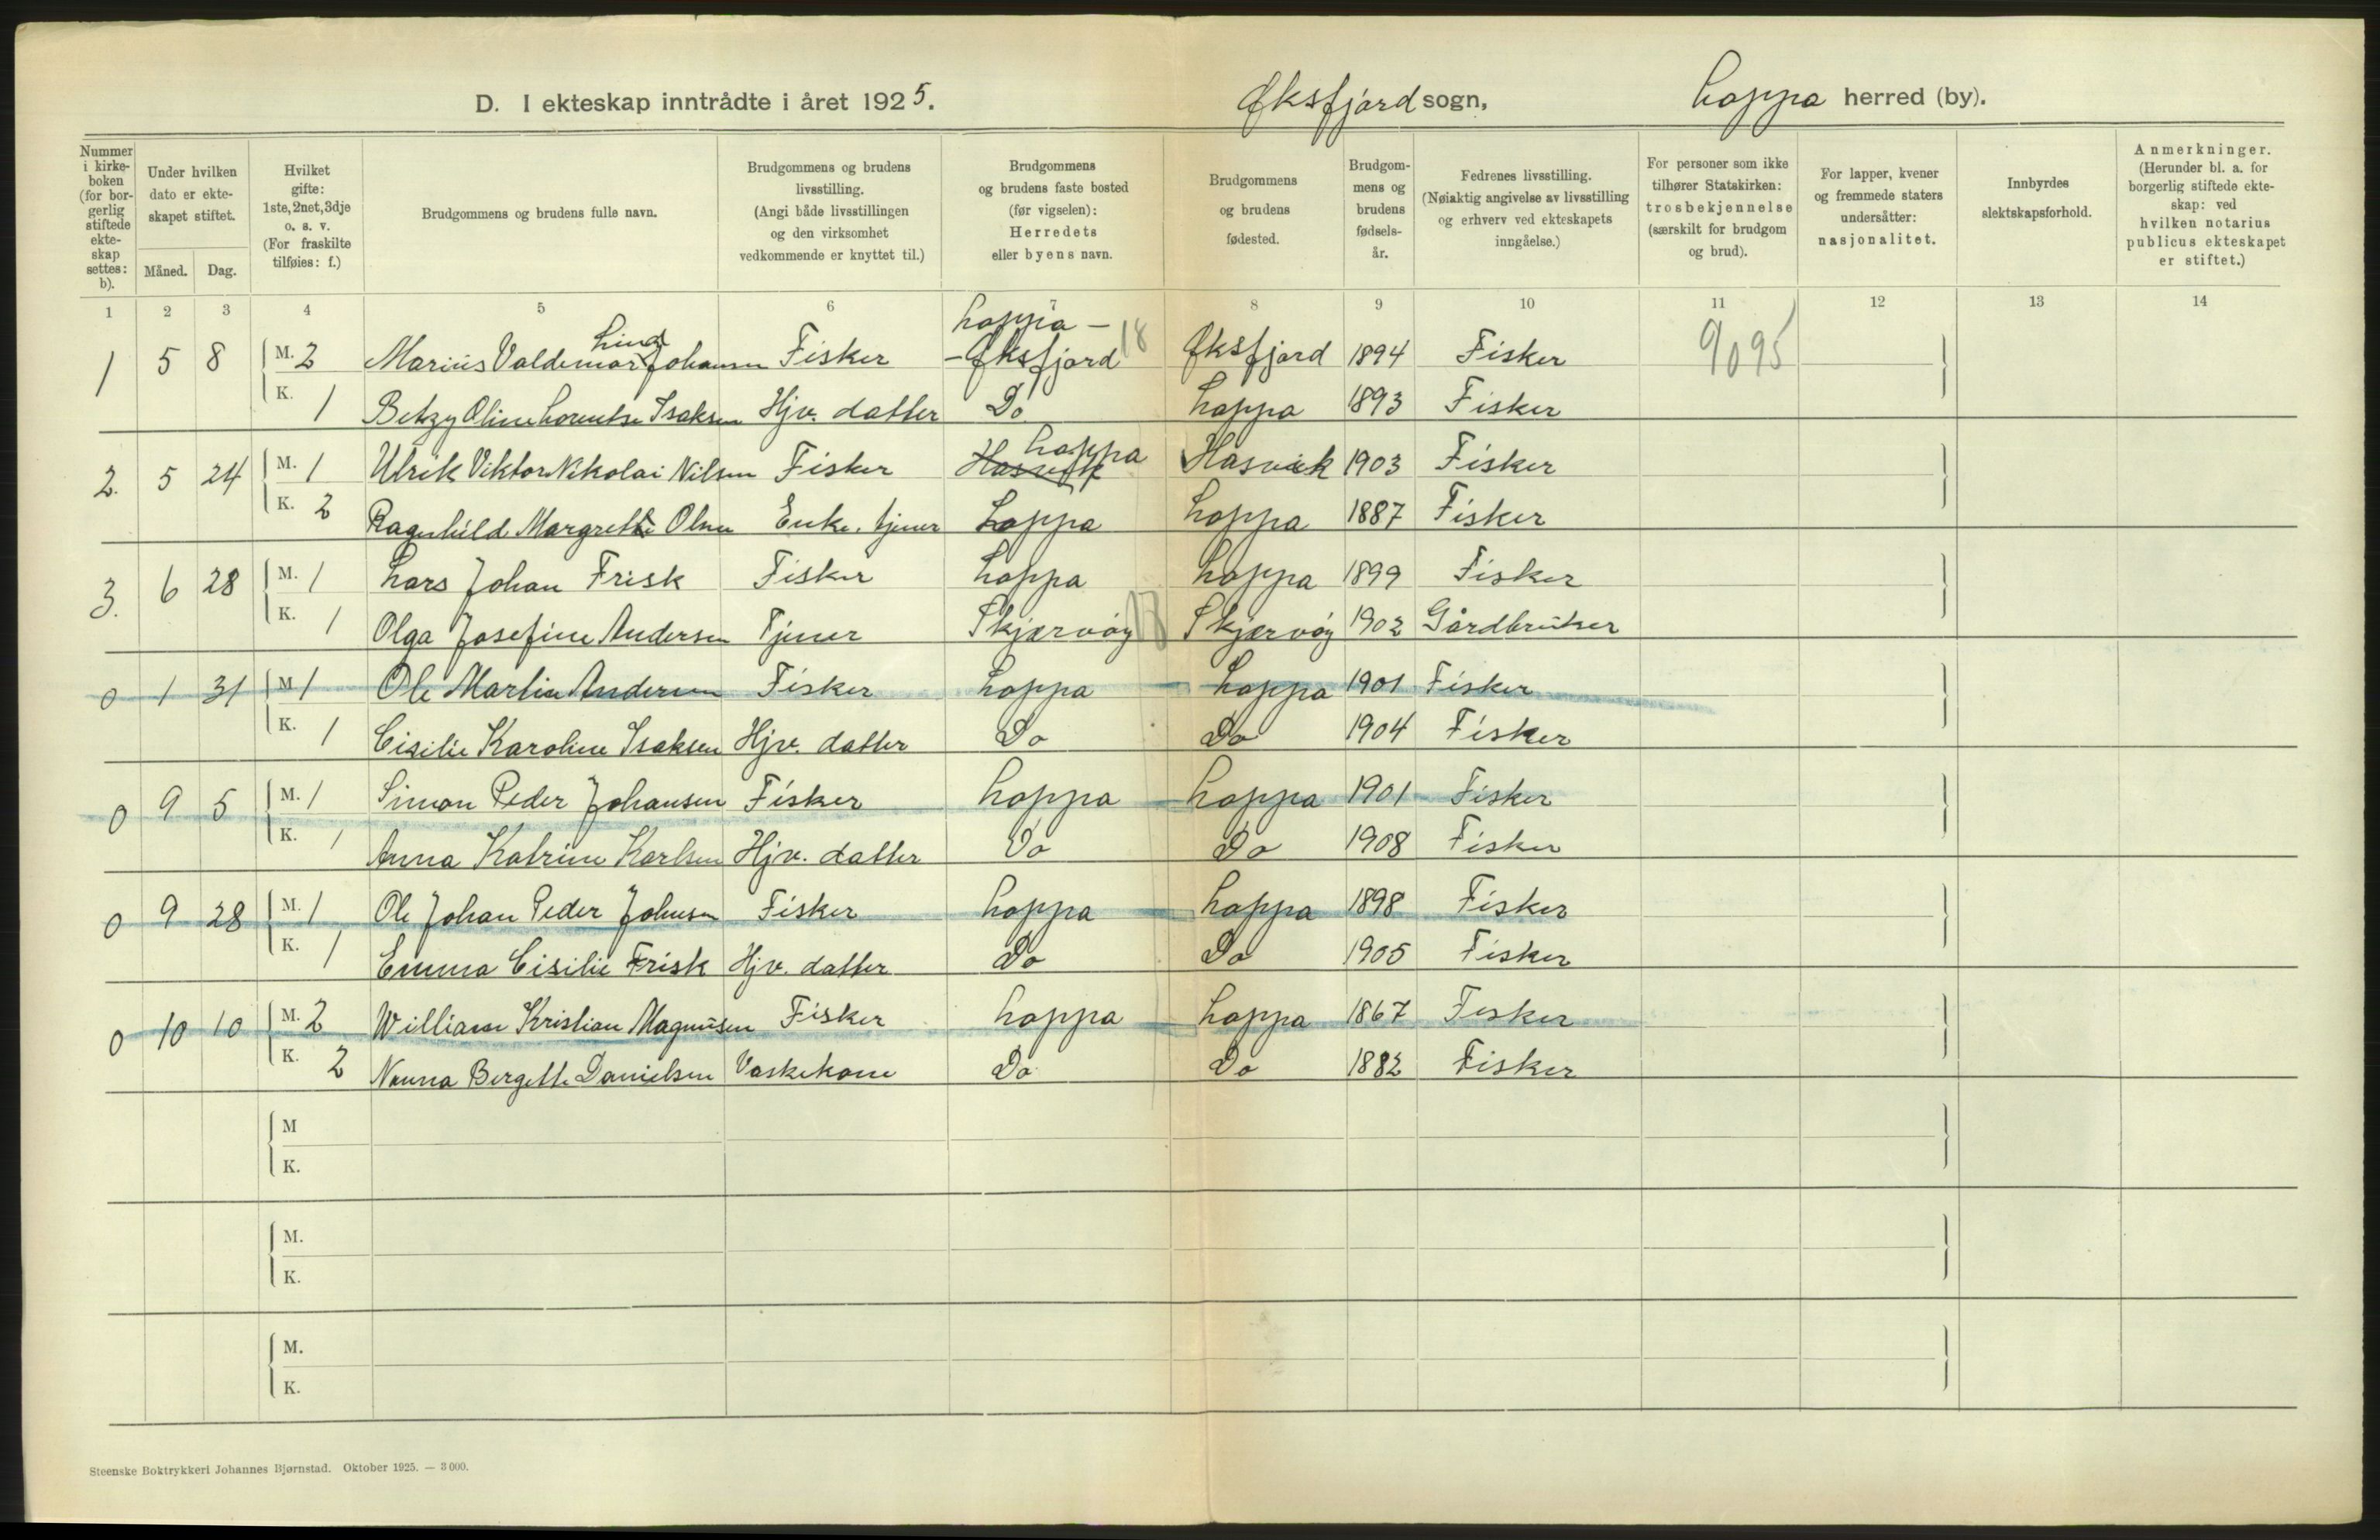 D. I ekteskap inntrådte i året 1925.
Øksfjord sogn,
Loppa herred (by).
Nummer i kirke- boken (for bor- gerlig stiftede ekte- skap settes: b).
Under hvilken dato er ekte- skapet stiftet.
Måned. Dag.
Hvilket gifte: 1ste, 2net, 3dje o. s. v. (For fraskilte tilføies: f.)
Brudgommens og brudens fulle navn.
Brudgommens og brudens livsstilling. (Angi både livsstillingen og den virksomhet vedkommende er knyttet til.)
Brudgommens og brudens faste bosted (før vigselen): Herredets eller byens navn.
Brudgommens og brudens fødested.
Brudgom- mens og brudens fødsels- år.
Fedrenes livsstilling. (Nøiaktig angivelse av livsstilling og erhverv ved ekteskapets inngåelse.)
For personer som ikke tilhører Statskirken: trosbekjennelse (særskilt for brudgom og brud).
For lapper, kvener og fremmede staters undersåtter: nasjonalitet.
Innbyrdes slektskapsforhold.
Anmerkninger. (Herunder bl. a. for borgerlig stiftede ekte- skap: ved hvilken notarius publicus ekteskapet er stiftet.)
1 2 3 4 5 6 7 8 9 10 11 12 13 14
Lind Loppa –
1 5 8 M. 2 Marius Valdemar Johansen Fisker – Øksfjord 18 Øksfjord 1894 Fisker 9095
K. 1 Betzy Oline Lorentse Isaksen Hjv. datter Do Loppa 1893 Fisker
Loppa
2. 5 24 M. 1 Ulrik Viktor Nikolai Nilsen Fisker Hasvik Hasvik 1903 Fisker
K. 2 Ragnhild Margrethe Olsen Enke. tjener Loppa Loppa 1887 Fisker
3. 6 28 M. 1 Lars Johan Frisk Fisker Loppa Loppa 1899 Fisker
K. 1 Olga Josefine Andersen Tjener Skjærvøy Skjærvøy 1902 Gårdbruker
0 1 31 M 1 Ole Martin Andersen Fisker Loppa Loppa 1901 Fisker
K. 1 Cisilie Karoline Isaksen Hjv. datter Do Do 1904 Fisker
0 9 5 M. 1 Simon Peder Johansen Fisker Loppa Loppa 1901 Fisker
K. 1 Anna Katrine Karlsen Hjv. datter Do Do 1908 Fisker
0 9 28 M. 1 Ole Johan Peder Johnsen Fisker Loppa Loppa 1898 Fisker
K. 1 Emma Cisilie Frisk Hjv. datter Do Do 1905 Fisker
0 10 10 M. 2 William Kristian Magnusen Fisker Loppa Loppa 1867 Fisker
K. 2 Nanna Bergette Danielsen Vaskekone Do Do 1882 Fisker
M
K.
M.
K.
M.
K.
Steenske Boktrykkeri Johannes Bjørnstad. Oktober 1925. — 3 000.